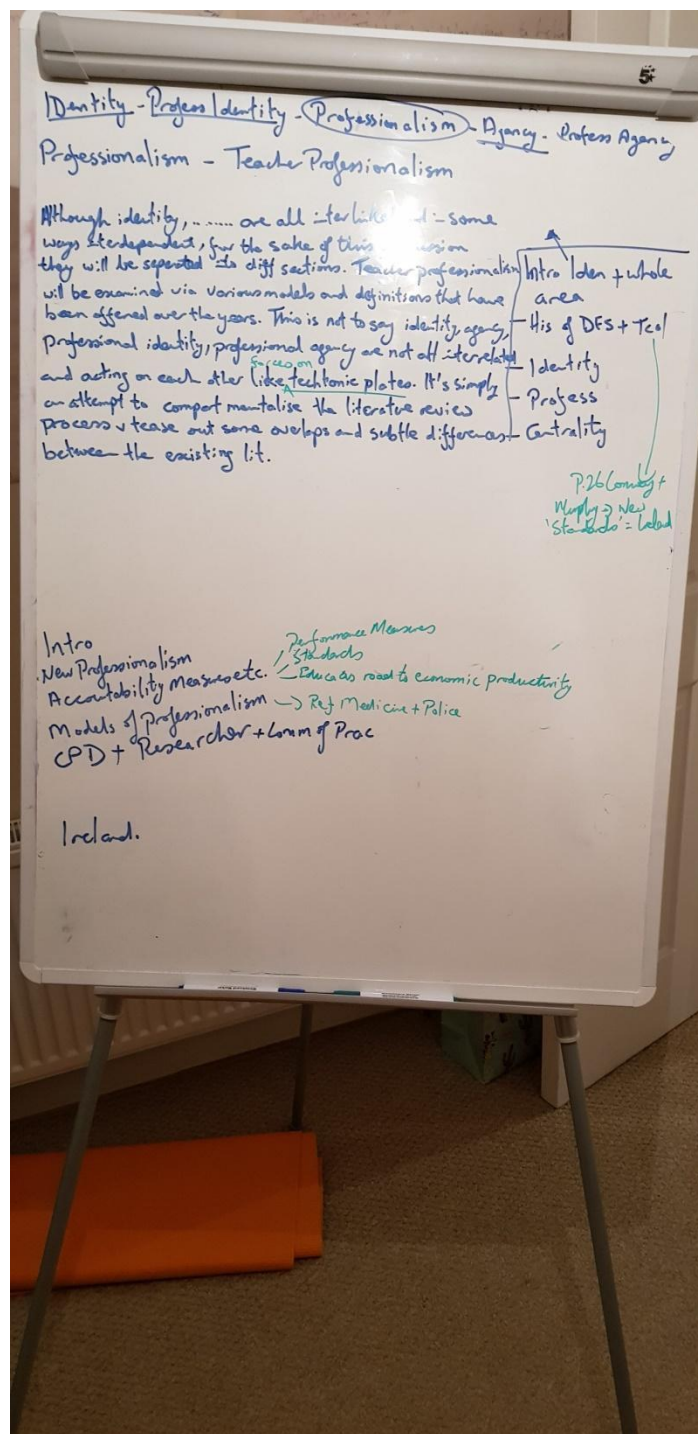 5*
IDentity - Profess Identity - Professionalism - Agency - Profess Agency
Professionalism - Teacher Professionalism
Although identity, ........ are all interlinked in some
ways interdependent, for the sake of this
they will be seperated into diff sections. Teacher professionalism
will be examined via various models and definitions that have
been offered over the years. This is not to say identity, agency,
professional identity, professional agency are not all interrelated
forces on
and acting on each other like techtonic plates. It's simply
an attempt to compartmentalise the literature review
process & tease out some overlaps and subtle differences
between the existing lit.
Intro Iden + whole
area
- His of DES +
- Identity
- Profess
- Centrality
P.26 Conway +
Murphy → New
'Standards' = Ireland
Intro
New Professionalism
Accountability Measures etc.
Performance Measures
Standards
Educ as road to economic productivity
Models of Professionalism → Ref Medicine + Police
CPD + Researcher + Comm of Prac
Ireland.